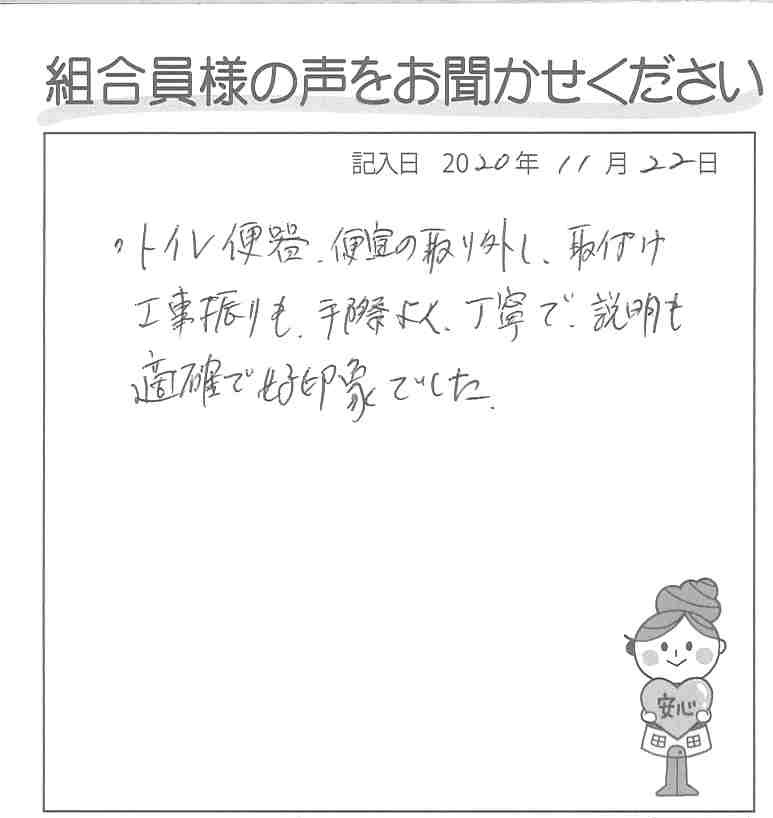 組合員様の声をお聞かせください
記入日 2020年 11月 22日
・トイレ便器、便宜の取り外し、取付け
工事振りも、手際よく、丁寧で、説明も
適確で好印象でした。
安心